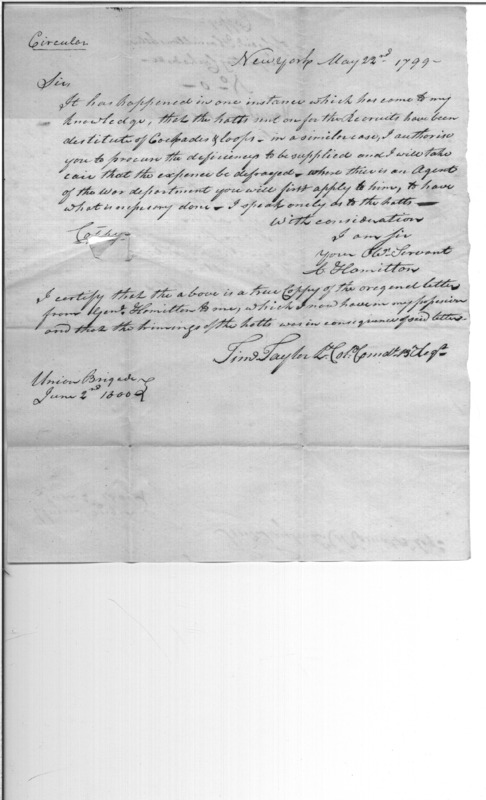 Circular
New York May 22nd 1799-
Sir,
It has happened in one instance which has come to my
Knowledge, that the hatts sent on for the Recruits have been
destitute of Cockades & loops - in a similar case, I authorise
you to procure the deficiency to be supplied and I will take
cair that the expense be defrayed - where there is an Agent
of the War department you will first apply to him, to have
what is necessary done - I speak onely as to the hatts -
With consideration
I am Sir
your Obt. Servant
A Hamilton
Copy
I certify that the above is a true Coppy of the oregenel letter
from Genl. Hamilton to me, which I now have in my possesion
and that the trimings of the hatts was in consequence of said letter.
Timo. Taylor Lt. Colo. Comdt. 13th Regt.
Union Brigade
June 2nd 1800